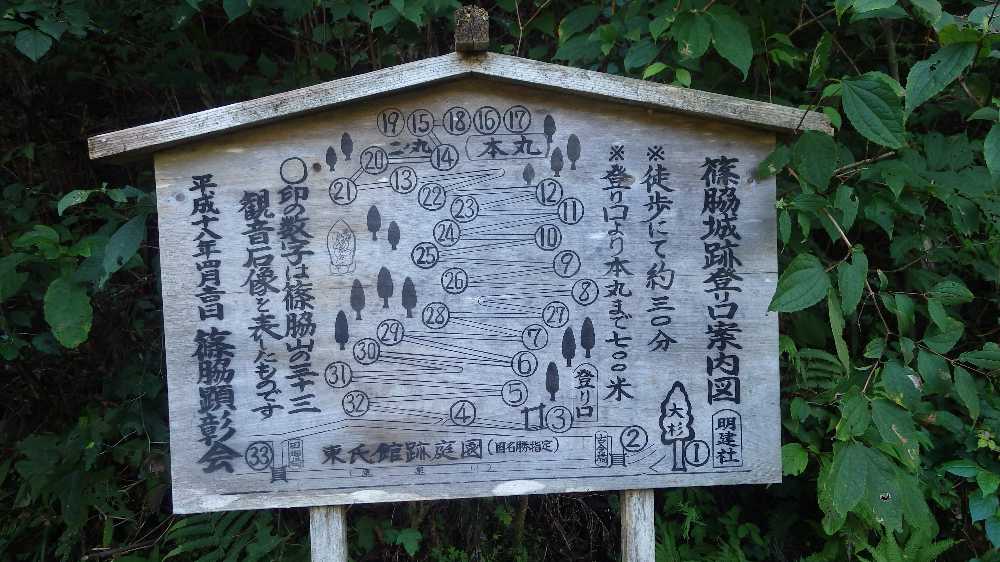 篠脇城跡登り口案内図
※徒歩にて約三〇分
※登り口より本丸まで七〇〇米
⑲ ⑮ ⑱ ⑯ ⑰
二ノ丸 ⑭ 本丸
⑳
㉑ ⑬ ㉒ ⑫
㉓ ⑪
㉔ ⑩
㉕ ⑨
㉖ ⑧
㉘ ㉗
㉙ ⑦
㉚ ⑥
㉛ ⑤
㉜ ④ ③
登り口
大杉
明建社
① ②
㉝
東氏館跡庭園(国名勝指定)
〇印の数字は篠脇山の三十三
観音石像を表したものです
平成十八年四月吉日 篠脇顕彰会